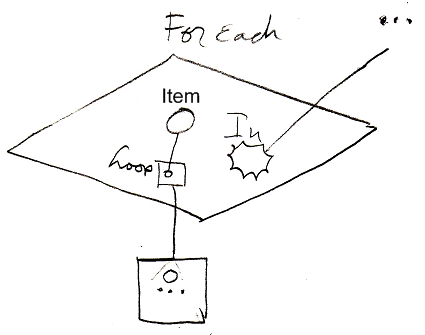 For Each
...
Item
In
Loop
...